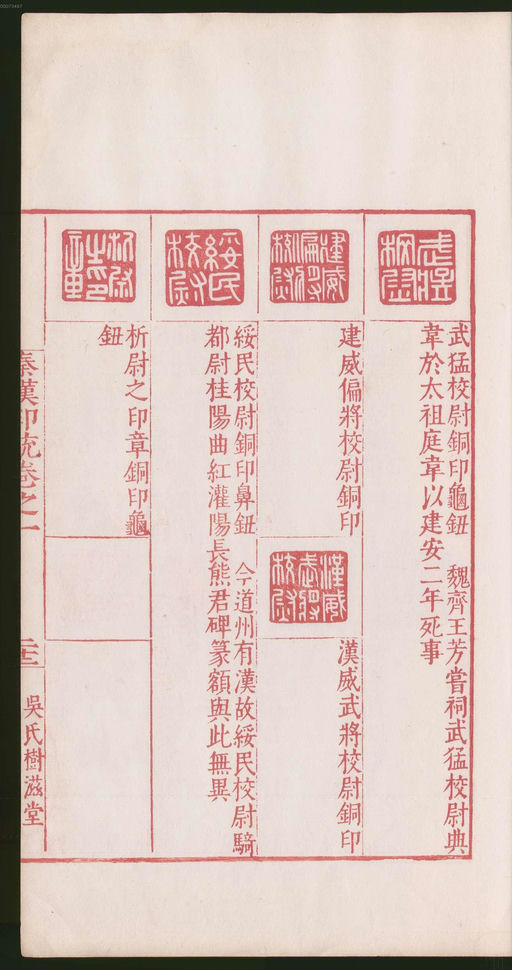 武猛校尉
武猛校尉銅印龜鈕　魏齊王芳嘗祠武猛校尉典
韋於太祖庭韋以建安二年死事
建威偏將校尉
建威偏將校尉銅印
漢威武將校尉
漢威武將校尉銅印
綏民校尉
綏民校尉銅印鼻鈕　今道州有漢故綏民校尉騎
都尉桂陽曲紅灌陽長熊君碑篆額與此無異
析尉之印章
析尉之印章銅印龜
鈕
秦漢印統卷之一
二十三
吳氏樹滋堂
00073487